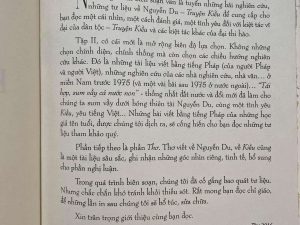 Những tư liệu về Nguyễn Du – Truyện Kiều để cung cấp cho
bạn đọc một cái nhìn, một cách đánh giá, một tình yêu đối với kiệt tác vĩ
đại của dân tộc – Truyện Kiều và các kiệt tác khác của đại thi hào.
Tập II, có cái mới là mở rộng biên độ lựa chọn. Không những
chọn chính diện, chính thống mà còn chọn các chiều hướng nghiên
cứu khác. Đó là những tài liệu viết bằng tiếng Pháp (của người Pháp
và người Việt), những nghiên cứu của các nhà nghiên cứu, nhà văn... ở
miền Nam trước 1975 (và một vài bài sau 1975 ở nước ngoài)... "Tài
hợp, sum vầy cả nước non" - thống nhất đất nước đã đi tới mới đã làm cho
chúng ta sum vầy dưới bóng thiên tài Nguyễn Du, cùng một tình yêu
Kiều, yêu tiếng Việt... Những bài viết bằng tiếng Pháp của những học
giả tên tuổi, được chúng tôi dịch ra, sẽ cống hiến cho bạn đọc những tư
liệu tham khảo quý.
Phần tiếp theo là phần Thơ. Thơ viết về Nguyễn Du, về Kiều cũng
là một tài liệu sâu sắc, ghi nhận những góc nhìn riêng, tinh tế, bổ sung
cho phần nghị luận.
Trong quá trình biên soạn, chúng tôi đã cố gắng bao quát tư liệu.
Nhưng chắc chắn khó tránh khỏi thiếu sót. Rất mong bạn đọc chỉ giáo,
để những lần in sau chúng tôi sẽ bổ túc, sửa chữa.
Xin trân trọng giới thiệu cùng bạn đọc.